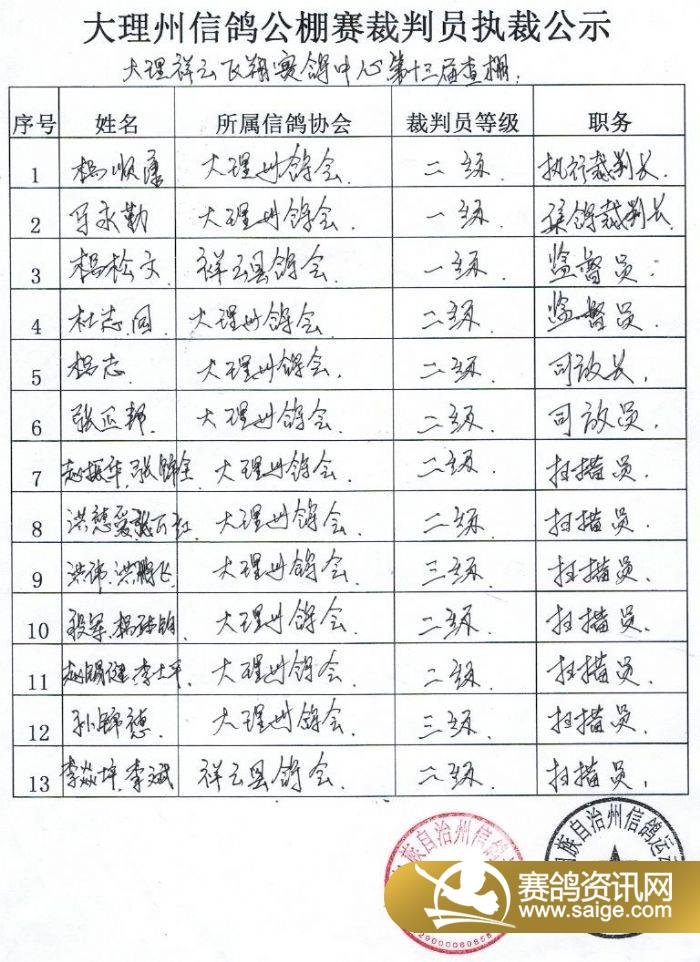 大理州信鸽公棚赛裁判员执裁公示
大理祥云飞翔赛鸽中心第十三届查棚.
序号 姓名 所属信鸽协会 裁判员等级 职务
1 杨顺 大理州鸽会. 二级. 执行裁判长.
2 马永勤 大理州鸽会. 一级. 集鸽裁判长.
3 杨松文 祥云县鸽会. 一级. 监督员.
4 杜志回 大理州鸽会 二级. 监督员.
5 杨志. 大理州鸽会. 二级. 司放长.
6 张正邦 大理州鸽会. 二级. 司放员.
7 赵振华.张锦全 大理州鸽会. 二级. 扫描员.
8 洪德爱 大理州鸽会. 二级. 扫描员.
9 洪伟.洪鹏飞 大理州鸽会. 三级. 扫描员.
10 段军.杨 大理州鸽会. 二级. 扫描员.
11 赵锡健.李士平. 大理州鸽会. 二级. 扫描员.
12 孙锦德 大理州鸽会. 三级. 扫描员.
13 李焱坤.李斌 祥云县鸽会. 二级. 扫描员.
族自治州信鸽运
族自治州信鸽运动
29000060855
赛鸽资讯网
www.saige.com